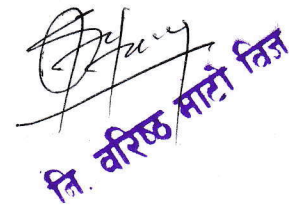 नि. वरिष्ठ माटो विज